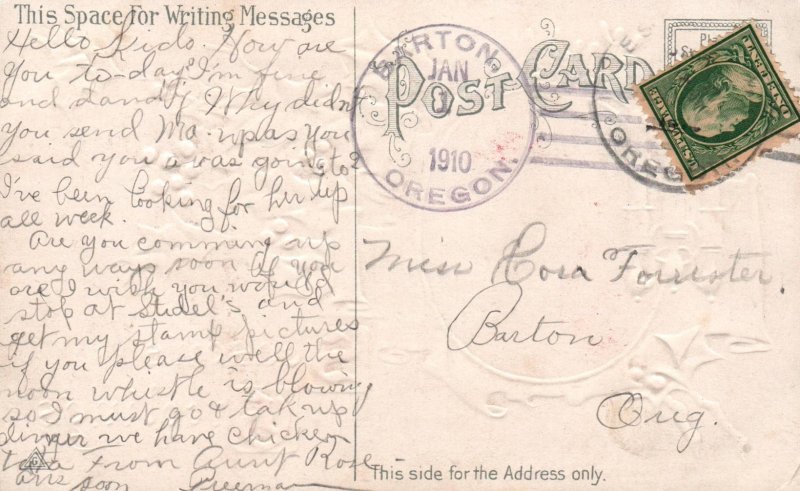 This Space For Writing Messages
Hello Kido. How are
you to-day? I'm fine
and dandy. Why didn't
you send Ma. up as you
said you a was going to?
I've been looking for her up
all week.
Are you comming up
any ways soon if you
are I wish you would
stop at Studel's and
get my stamp pictures
if you please well the
noon whistle is blowing
so I must go & tak up
dinner we have chicken
From Aunt Rose
ans soon Freeman
POST CARD
BARTON
JAN
1910
OREGON.
OREG
ONE CENT
Miss Cora Forrester.
Barton
Oreg.
This side for the Address only.